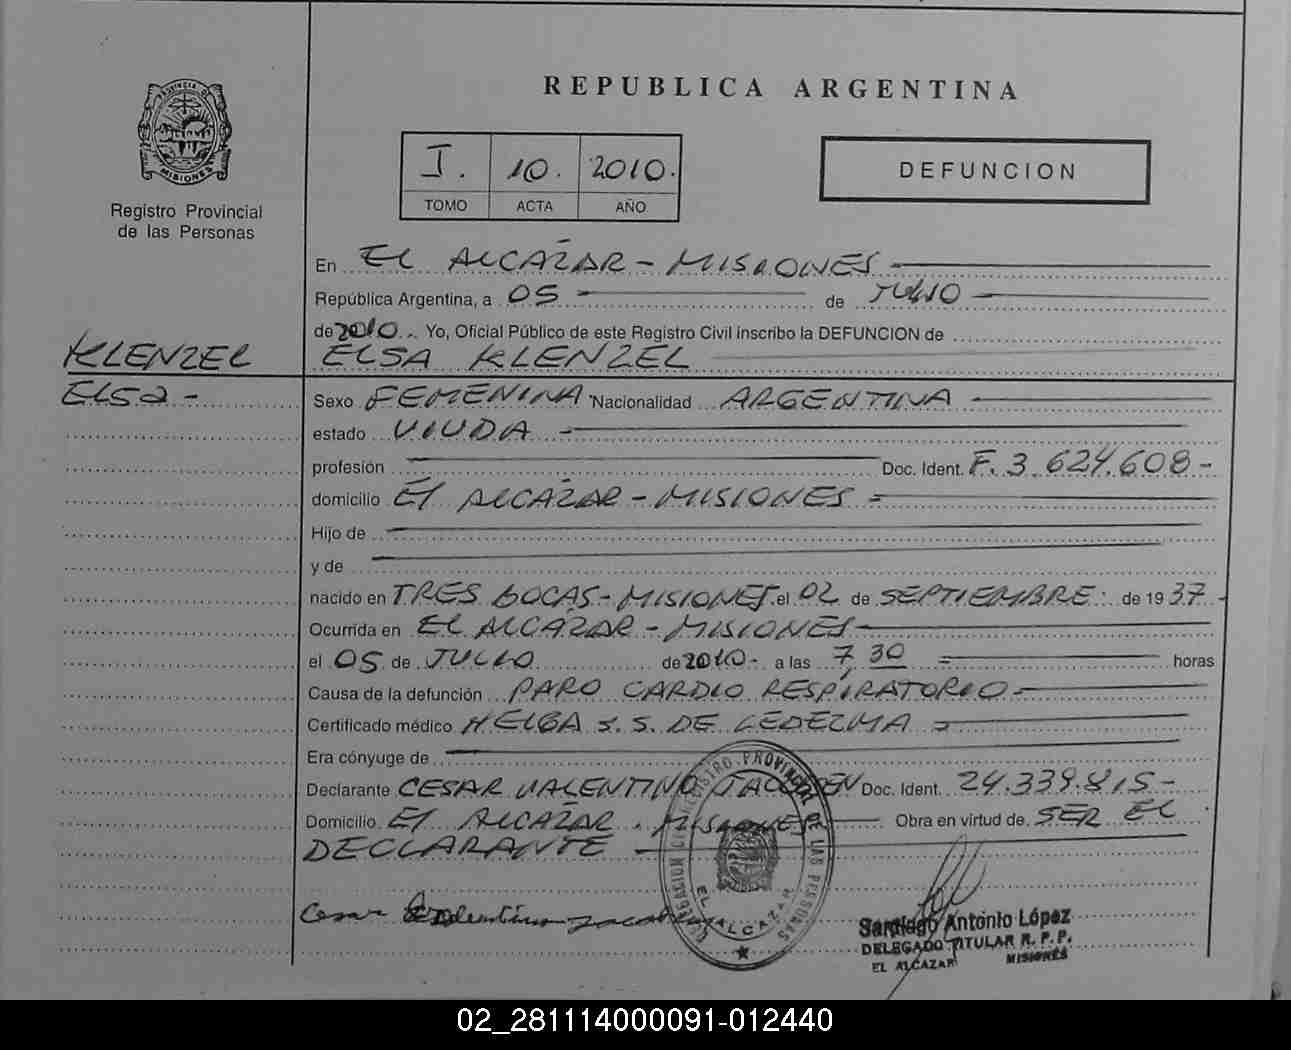 REPUBLICA ARGENTINA
PROVINCIA DE
MISIONES
Registro Provincial
de las Personas
I. 10. 2010.
TOMO ACTA AÑO
DEFUNCION
En EL ALCAZAR - MISIONES
República Argentina, a 05 de JULIO
de 2010. Yo, Oficial Público de este Registro Civil inscribo la DEFUNCION de
KLENZEL
ELSA KLENZEL
ELSA -
Sexo FEMENINA Nacionalidad ARGENTINA
estado VIUDA
profesión Doc. Ident. F. 3.624.608 -
domicilio El ALCAZAR - MISIONES =
Hijo de
y de
nacido en TRES BOCAS - MISIONES. el 02 de SEPTIEMBRE de 1937 -
Ocurrida en EL ALCAZAR - MISIONES -
el 05 de JULIO de 2010 - a las 7,30 = horas
Causa de la defunción PARO CARDIO RESPIRATORIO -
Certificado médico HELGA S. S. DE LEDEZMA =
Era cónyuge de
Declarante CESAR VALENTINO JACOBSEN Doc. Ident. 24.339.815 -
Domicilio El ALCAZAR - MISIONES Obra en virtud de SER EL
DECLARANTE
Cesar Valentino
REGISTRO PROVINCIAL DE LAS PERSONAS
EL ALCAZAR
Santiago Antonio López
DELEGADO TITULAR R. P. P.
EL ALCAZAR MISIONES
02_281114000091-012440